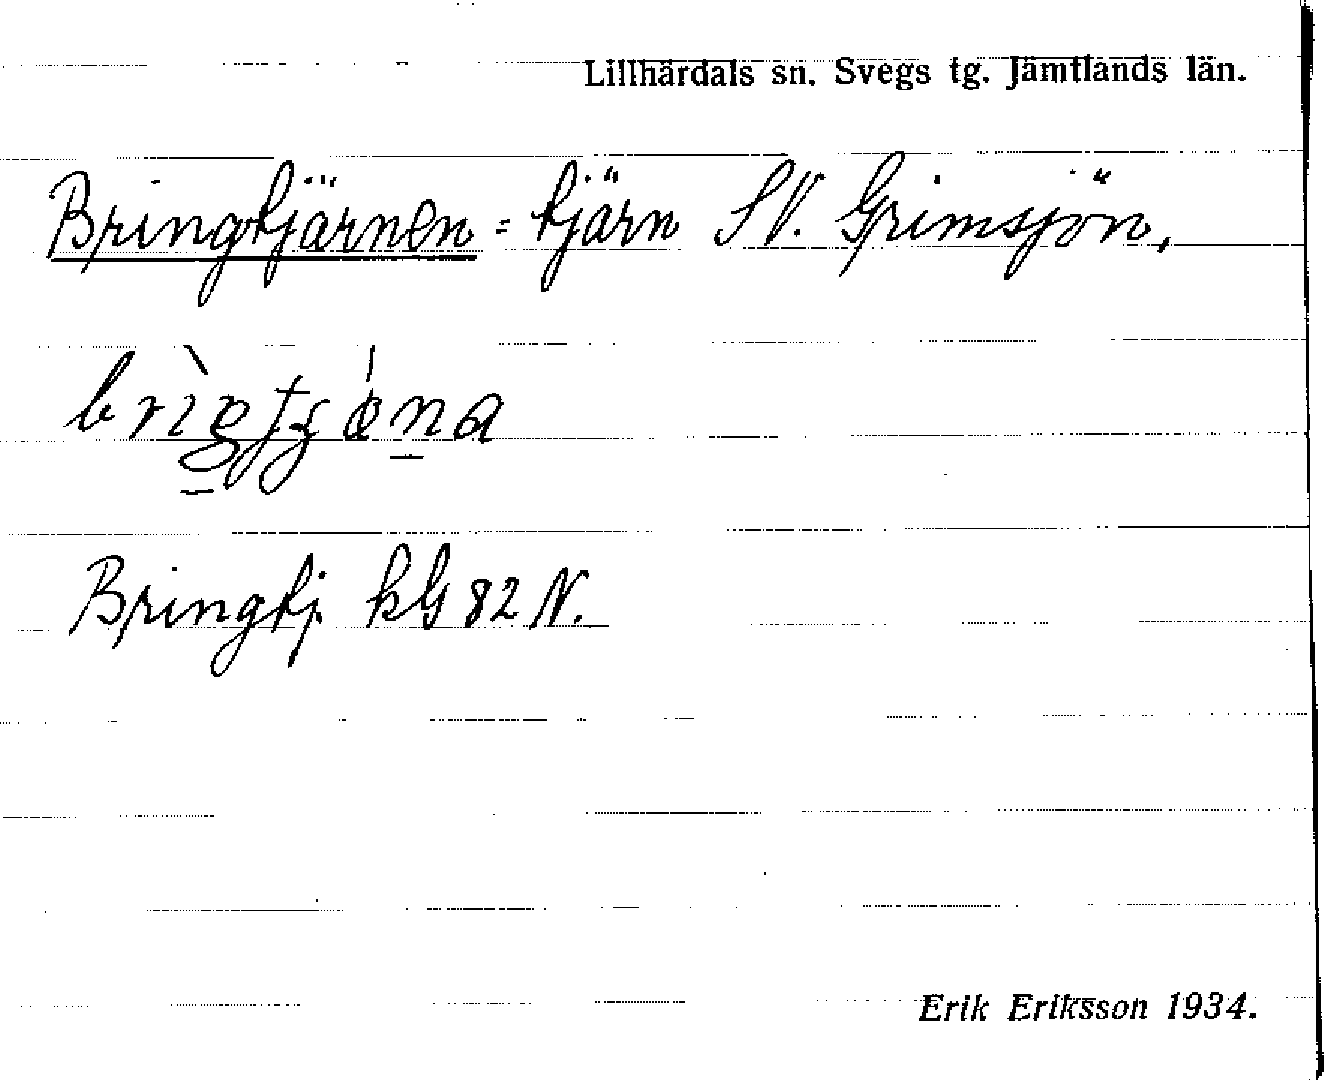 Lillhärdals sn. Svegs tg. Jämtlands län.
Bringtjärnen = tjärn SV. Grimsjön,
Bringtj. kG 82 N.
Erik Eriksson 1934.